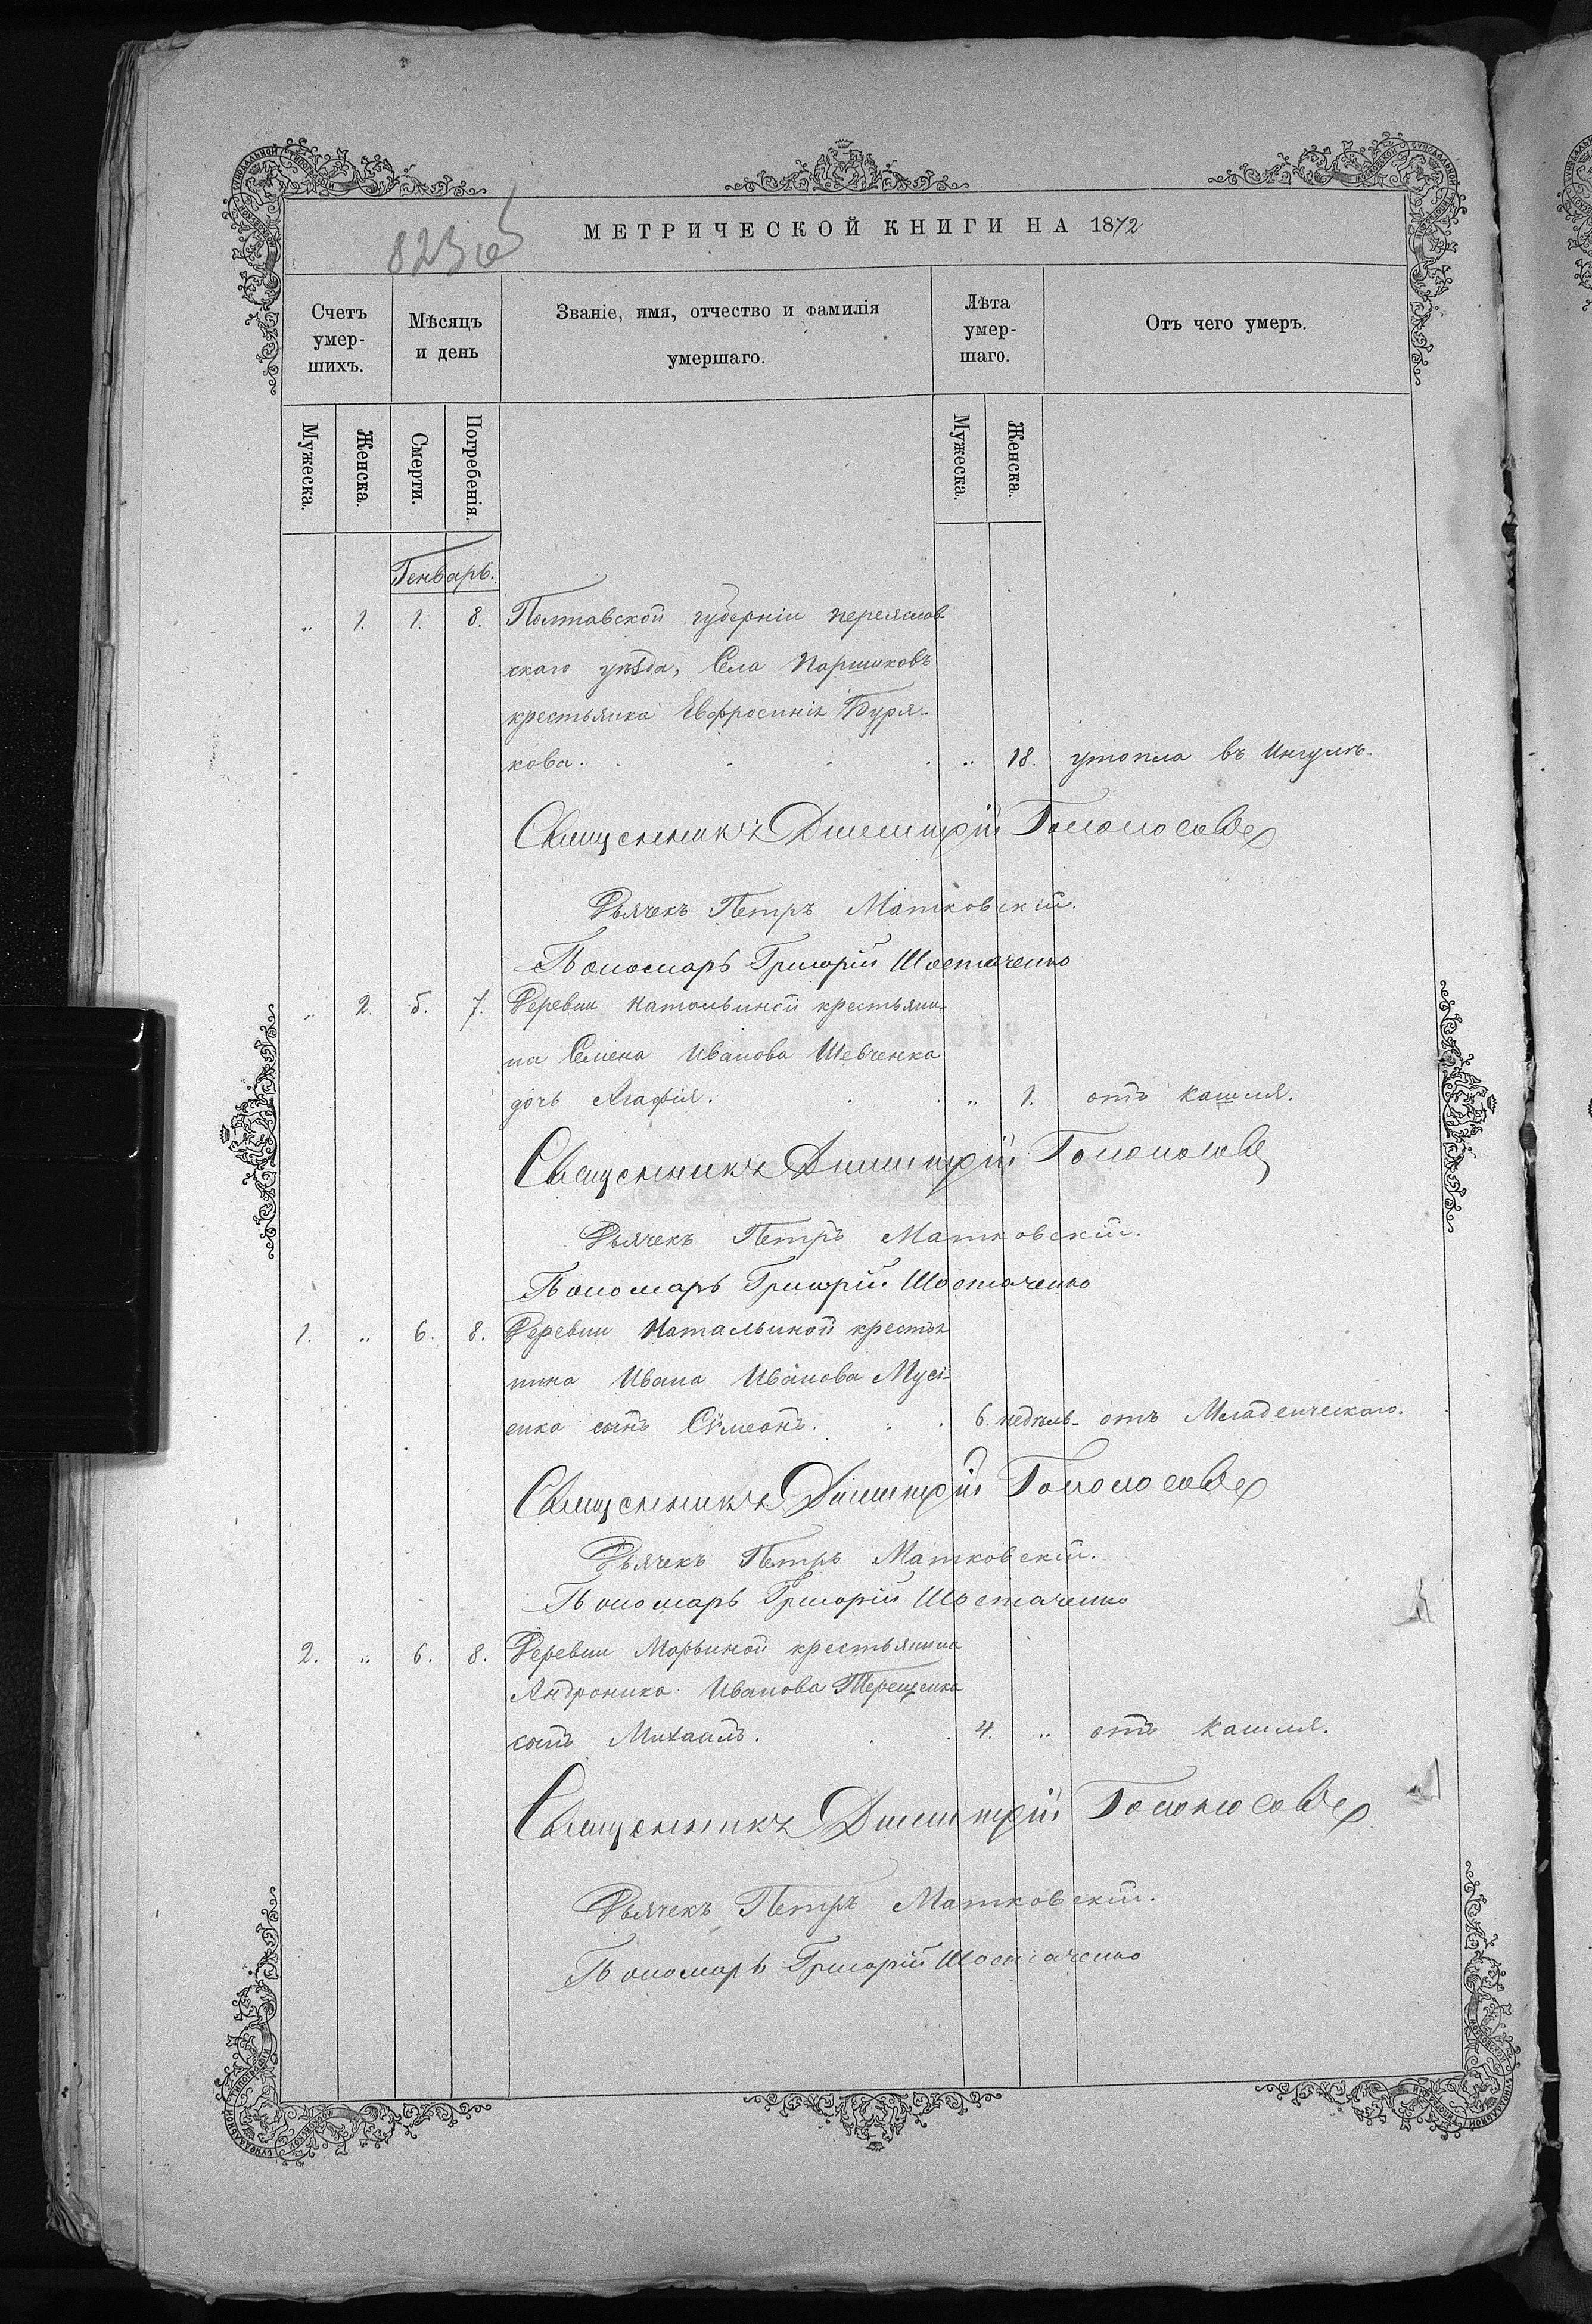 МЕТРИЧЕСКОЙ КНИГИ НА 1872
823 об
Счетъ умер-шихъ.
Мѣсяцъ и день
Званіе, имя, отчество и фамилія умершаго.
Лѣта умер-шаго.
Отъ чего умеръ.
Мужеска.
Женска.
Смерти.
Погребенія.
Мужеска.
Женска.
Генварь.
„ 1. 1. 8. Полтавской губерніи переяслав-
скаго уѣзда, Села Паришковъ
крестьянка Евфросинія Буря-
кова. „ 18. утопла въ Ингулѣ.
Священникъ Димитрій Голоносовъ
Дьячекъ Петръ Матковскій.
Пономарь Григорій Шостаченко
„ 2. 5. 7. Деревни Натальиной крестьяни-
на Семена Иванова Шевченка
дочь Агафія. „ 1. отъ кашля.
Священникъ Димитрій Голоносовъ
Дьячекъ Петръ Матковскій.
Пономарь Григорій Шостаченко
1. „ 6. 8. Деревни Натальиной крестья
нина Ивана Иванова Мусі-
енка сынъ Сѵмеонъ. 6. недѣль- отъ Младенческаго.
Священникъ Димитрій Голоносовъ
Дьячекъ Петръ Матковскій.
Пономарь Григорій Шостаченко
2. „ 6. 8. Деревни Марьиной крестьянина
Андроника Иванова Терещенка
сынъ Михаилъ. 4. „ отъ кашля.
Священникъ Димитрій Голоносовъ
Дьячекъ Петръ Матковскій.
Пономарь Григорій Шостаченко